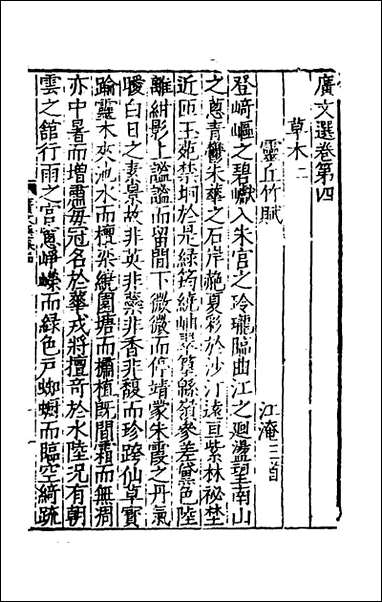 廣文選卷第四
草木二
靈丘竹賦 江淹三首
登崎嶇之碧巘入朱宫之玲瓏臨曲江之迴盪望南山
之蔥青鬱朱華之石岸赩夏彩於沙汀遠亘紫林祕埜
近匝玉苑禁坰於是綠筠繞岫翠篁綿嶺參差黛色陸
離紺影上謐謐而留閒下微微而停靖蒙朱霞之丹氣
曖白日之素景故非英非藥非香非馥而珍跨仙草寶
踰靈木夾池水而檀欒繞園塘而櫹植既間霜而無凋
亦中暑而增肅每冠名於華戎將擅奇於水陸况有朝
雲之館行雨之宫窻崢嶸而綠色戶踟躕而臨空綺疏